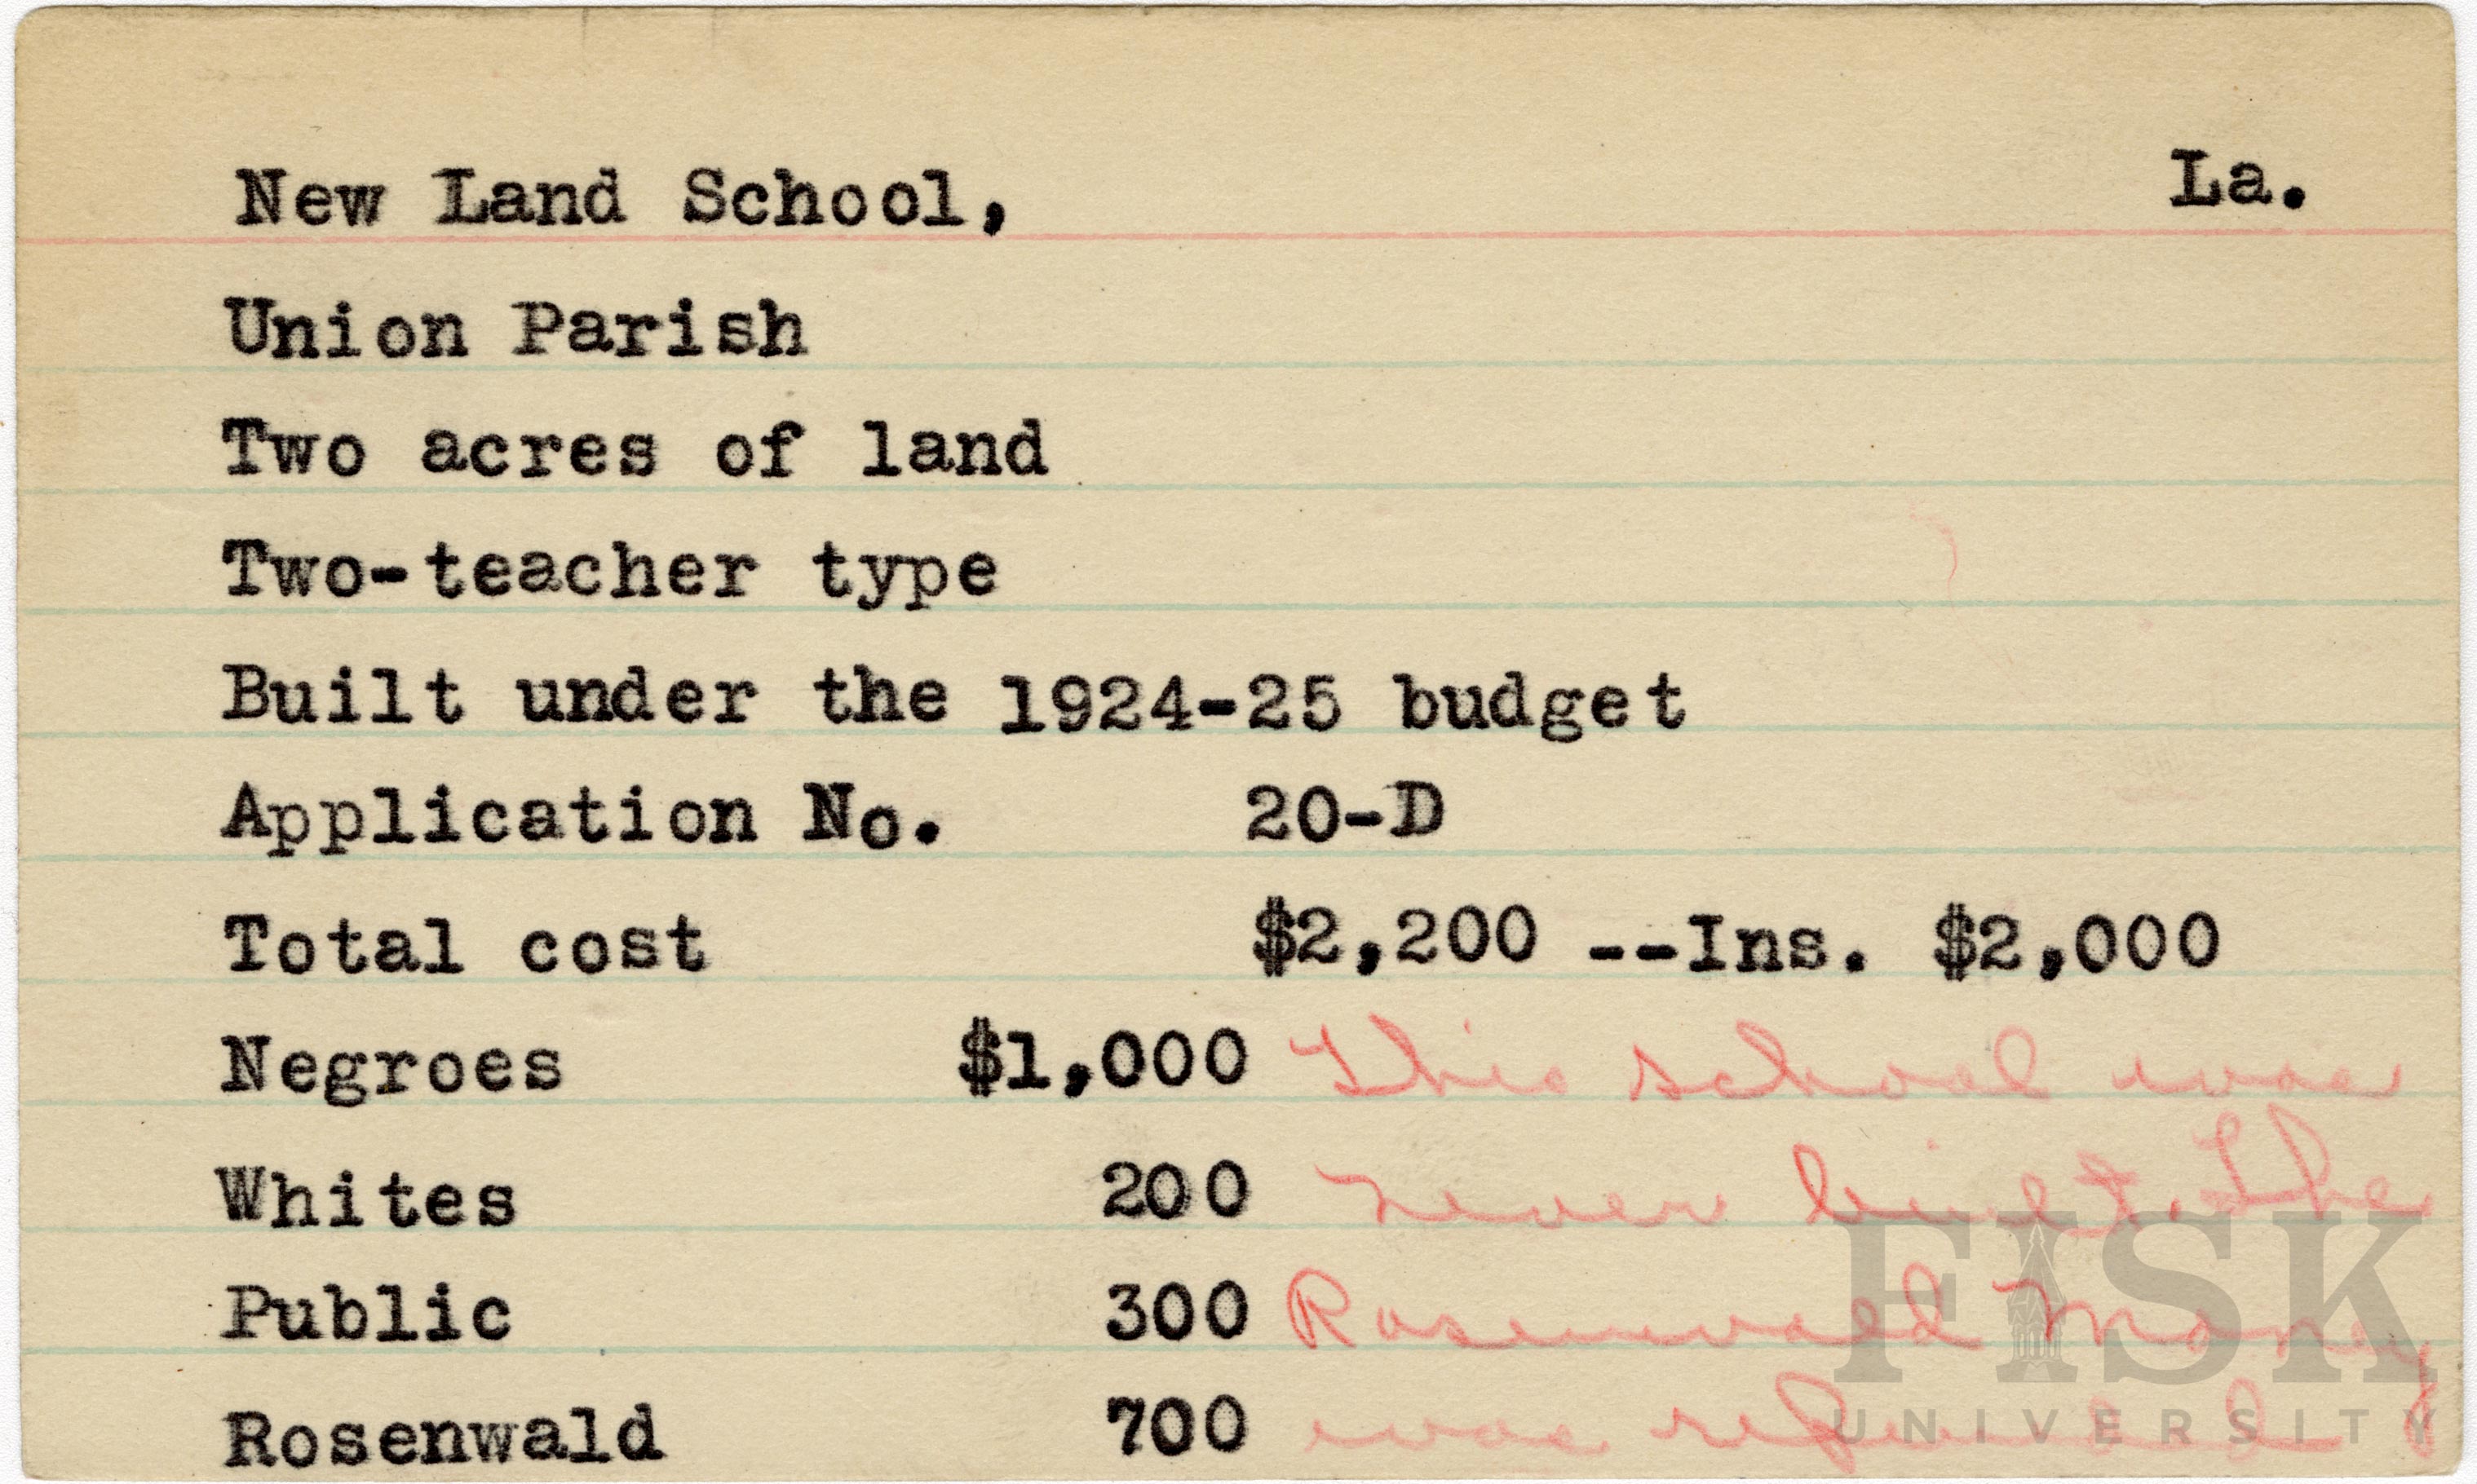 New Land School, La.
Union Parish
Two acres of land
Two-teacher type
Built under the 1924-25 budget
Application No. 20-D
Total cost $2,200 --Ins. $2,000
Negroes $1,000 This school was
Whites 200 never built. The
Public 300 Rosenwald money
Rosenwald 700 was refunded
FISK
UNIVERSITY